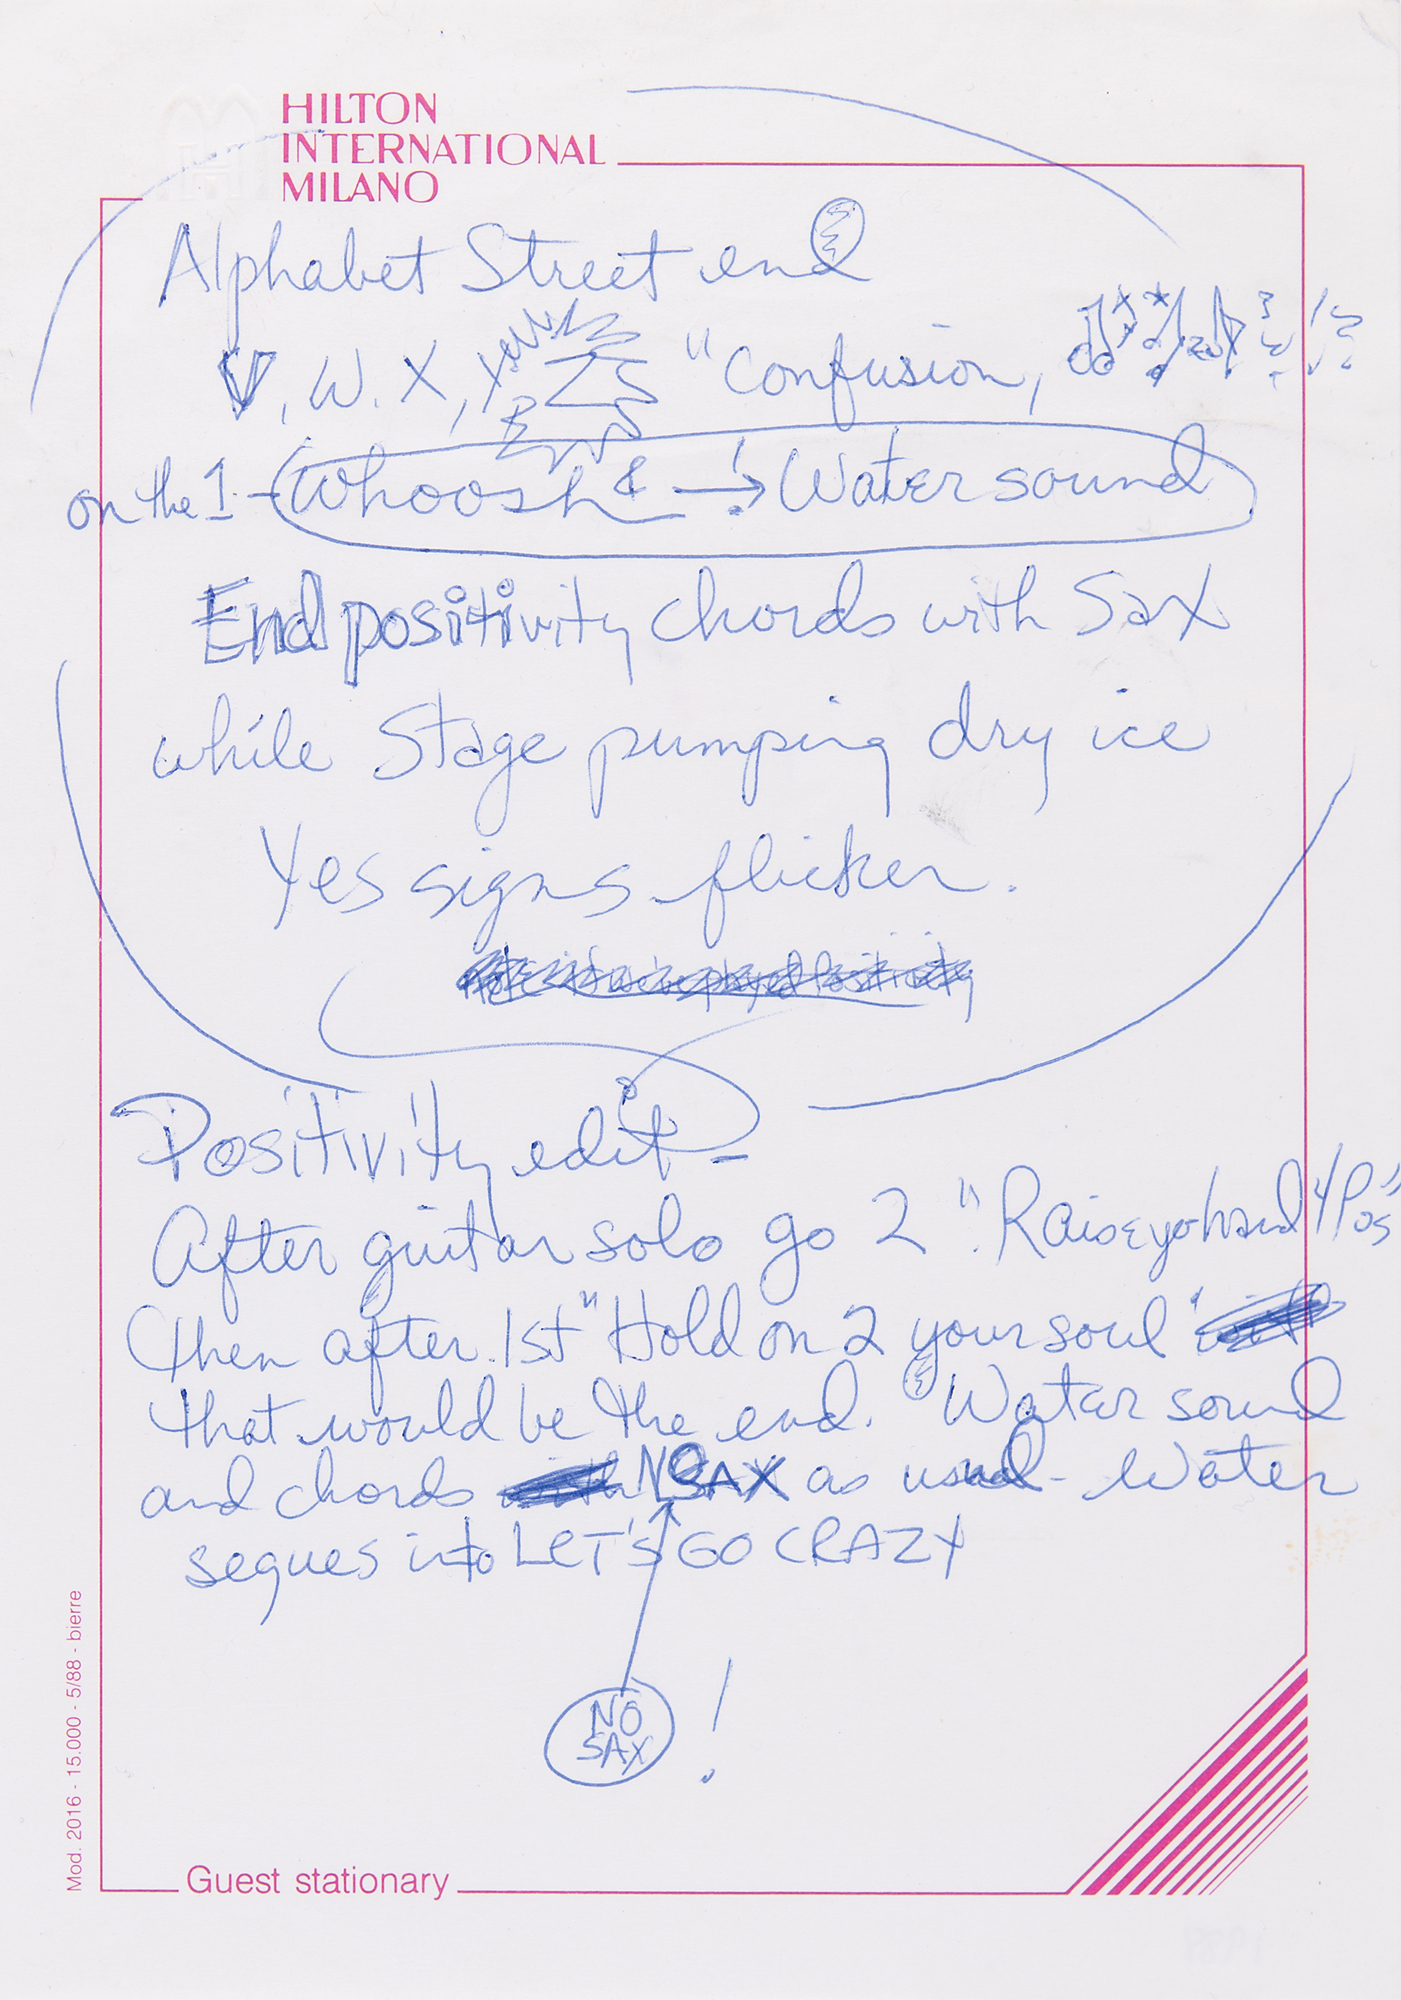 HILTON
INTERNATIONAL
MILANO
Alphabet Street end
V, W. X, Y, Z "Confusion,
on the 1 - Whoosh & → Water sound
End positivity chords with Sax
while Stage pumping dry ice
Yes signs flicker.
Positivity edit -
After guitar solo go 2 "Raise yo hand 4 Pos"
Then after 1st "Hold on 2 your soul"
that would be the end. Water sound
and chords NO SAX as usual - Water
segues into LET'S GO CRAZY
NO
SAX !
Mod. 2016 - 15.000 - 5/88 - bierre
Guest stationary